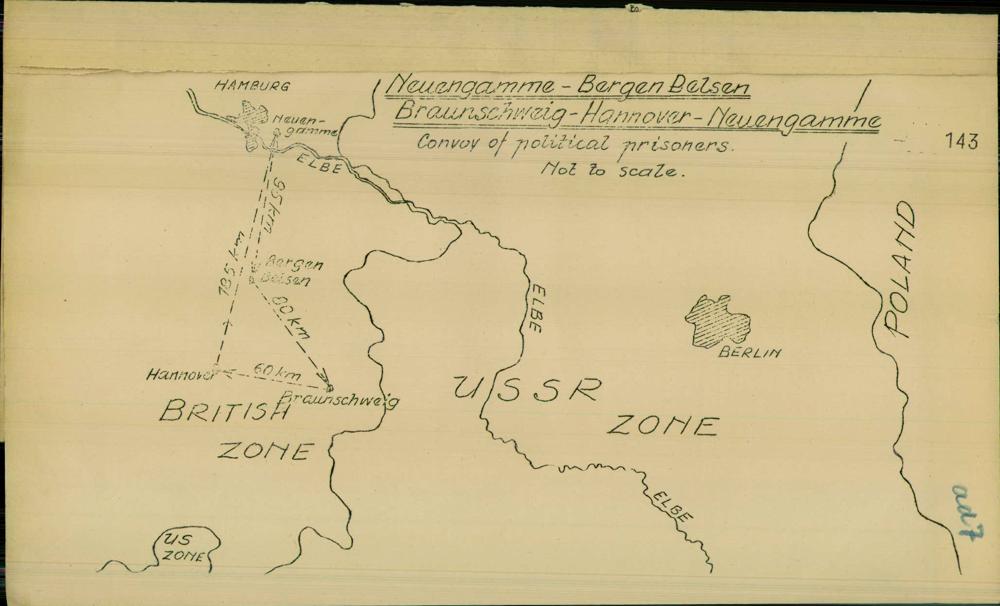 Neuengamme - Bergen Belsen
Braunschweig - Hannover - Neuengamme
Convoy of political prisoners.
Not to scale.
143
HAMBURG
Neuen-
gamme
ELBE
95 km
185 km
Bergen
Belsen
80 km
Hannover
60 km
Braunschweig
BRITISH
ZONE
US
ZONE
ELBE
USSR
ZONE
BERLIN
ELBE
POLAND
ad 7